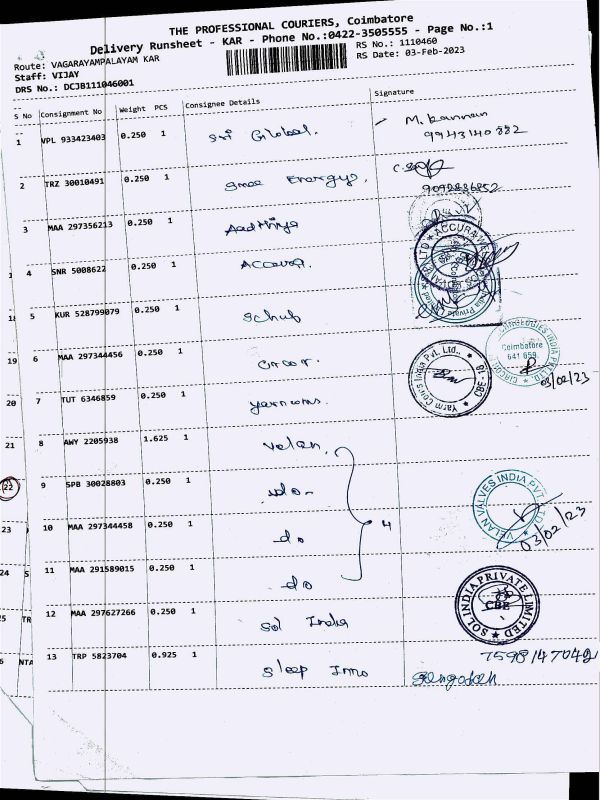 THE PROFESSIONAL COURIERS, Coimbatore
Delivery Runsheet - KAR - Phone No.:0422-3505555 - Page No.:1
Route: VAGARAYAMPALAYAM KAR
RS No.: 1110460
Staff: VIJAY
RS Date: 03-Feb-2023
DRS No.: DCJB111046001
S No Consignment No Weight PCS Consignee Details Signature
1 VPL 933423403 0.250 1 Sri Global. M. Kannan
9943140882
2 TRZ 30010491 0.250 1 Energy.
9092836852
3 MAA 297356213 0.250 1 Aadhiya
4 SNR 5008622 0.250 1
5 KUR 528799079 0.250 1 Schub
6 MAA 297344456 0.250 1 Circor.
Coimbatore
641 659.
03/02/23
7 TUT 6346859 0.250 1 Yarncoms.
Yarn Coms India Pvt. Ltd., CBE-18
8 AWY 2205938 1.625 1 Velan.
9 SPB 30028803 0.250 1 do
VELAN VALVES INDIA PVT. LTD
03/02/23
10 MAA 297344458 0.250 1 do 4
11 MAA 291589015 0.250 1 do
12 MAA 297627266 0.250 1 Sol India
SOL INDIA PRIVATE LIMITED
CBE
13 TRP 5823704 0.925 1 Sleep Inno
7598147042
19
20
21
22
23
24